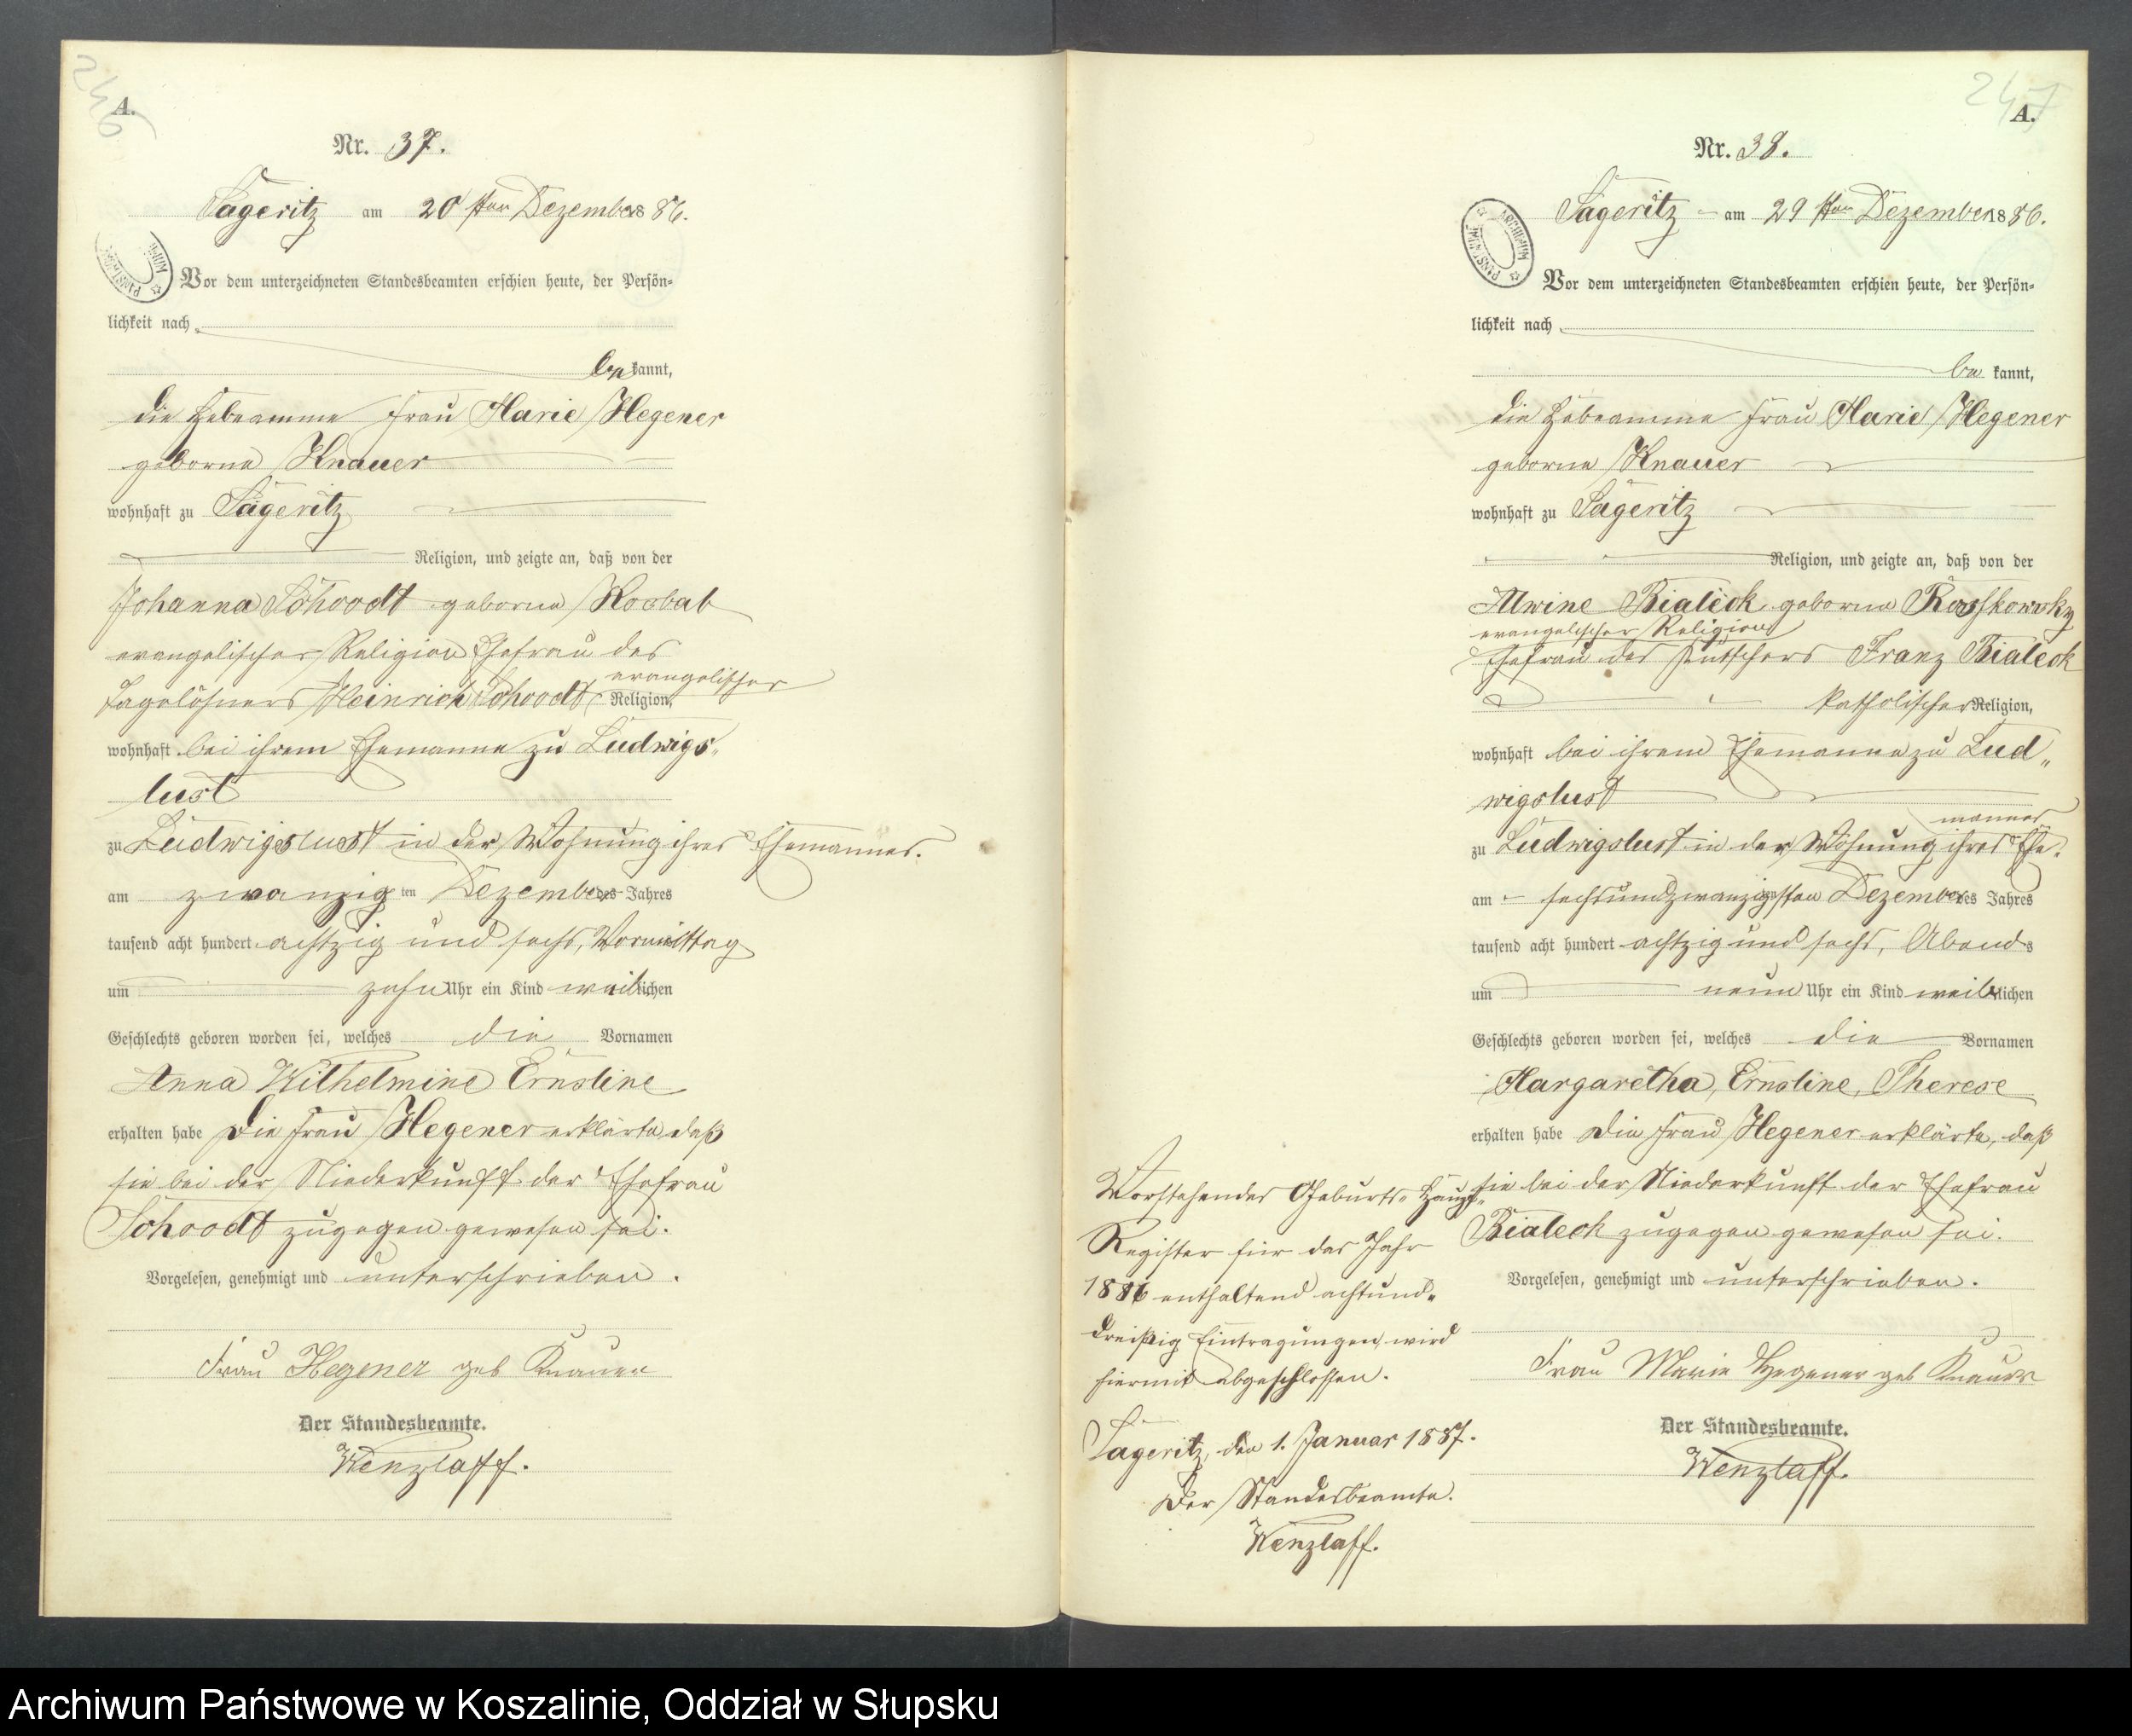 246
A.
Nr. 37.
Sageritz am 20ten Dezember 1886.
Vor dem unterzeichneten Standesbeamten erschien heute, der Persön-
lichkeit nach
be kannt,
die Hebeamme Frau Marie Hegener
geborne Knauer
wohnhaft zu Sageritz
Religion, und zeigte an, daß von der
Johanna Schoodt geborne
evangelischer Religion Ehefrau des
Tagelöhners Heinrich Schoodt evangelischer Religion,
wohnhaft bei ihrem Ehemanne zu Ludwigs-
lust
zu Ludwigslust in der Wohnung ihres Ehemannes.
am zwanzig ten Dezember des Jahres
tausend acht hundert achtzig und sechs, Vormittag
um zehn Uhr ein Kind weiblichen
Geschlechts geboren worden sei, welches die Vornamen
Anna Wilhelmine Ernstine
erhalten habe Die Frau Hegener erklärte, daß
sie bei der Niederkunft der Ehefrau
Schoodt zugegen gewesen sei.
Vorgelesen, genehmigt und unterschrieben.
Frau Hegener geb Knauer
Der Standesbeamte.
Wenzlaff.
247
A.
Nr. 38.
Sageritz am 29ten Dezember 1886.
ARCHIWUM PAŃSTWOWE
Vor dem unterzeichneten Standesbeamten erschien heute, der Persön-
lichkeit nach
be kannt,
die Hebeamme Frau Marie Hegener
geborne Knauer
wohnhaft zu Sageritz
Religion, und zeigte an, daß von der
Alwine Bialeck geborne Rosskowsky
evangelischer Religion
Ehefrau des Franz Bialeck
katholischer Religion,
wohnhaft bei ihrem Ehemanne zu Lud-
wigslust
zu Ludwigslust in der Wohnung ihres Ehe-
mannes
am sechsundzwanzigsten Dezember des Jahres
tausend acht hundert achtzig und sechs, Abends
um neun Uhr ein Kind weiblichen
Geschlechts geboren worden sei, welches die Vornamen
Margaretha, Ernstine, Therese
erhalten habe Die Frau Hegener erklärte, daß
sie bei der Niederkunft der Ehefrau
Bialeck zugegen gewesen sei.
Vorgelesen, genehmigt und unterschrieben.
Frau Marie Hegener geb Knauer
Der Standesbeamte.
Wenzlaff.
Vorstehendes Geburts-Haupt-
Register für das Jahr
1886 enthaltend achtund-
dreißig Eintragungen, wird
hiermit abgeschlossen.
Sageritz, den 1. Januar 1887.
Der Standesbeamte.
Wenzlaff.
Archiwum Państwowe w Koszalinie, Oddział w Słupsku